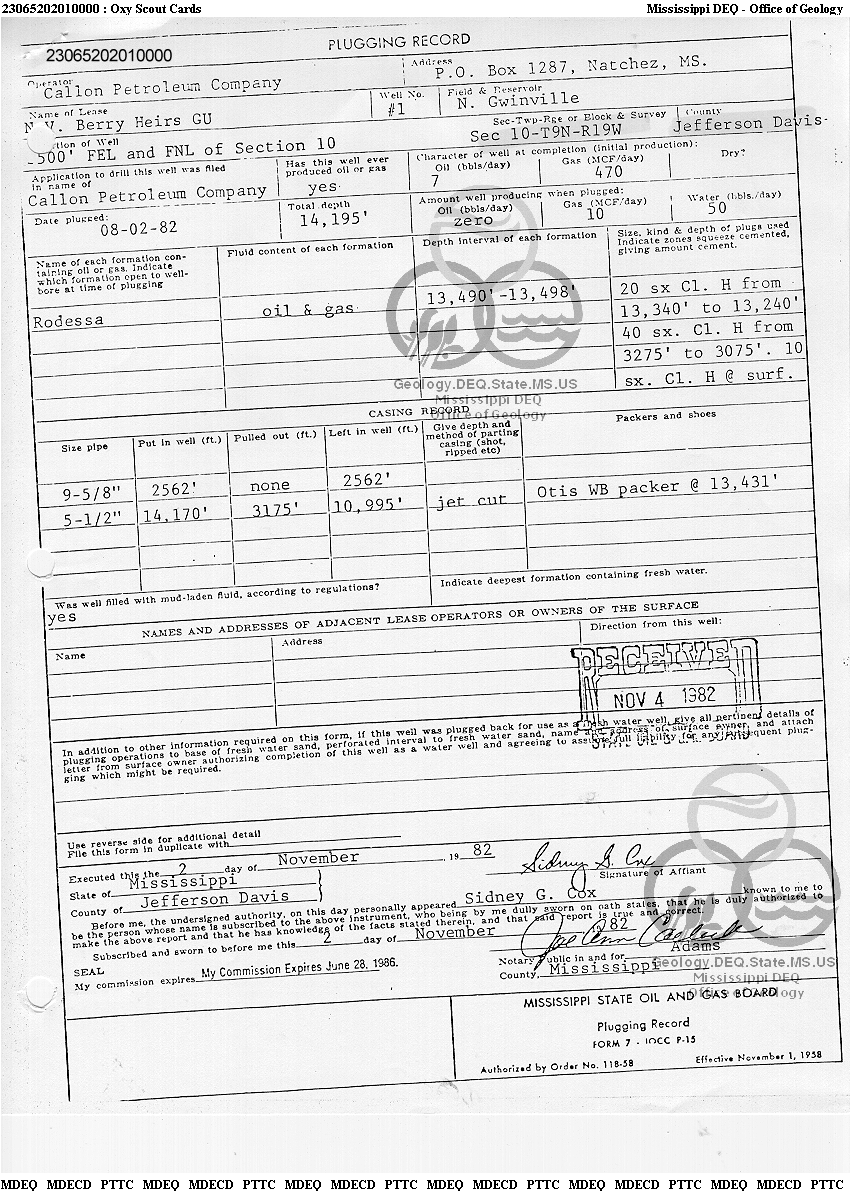 23065202010000 : Oxy Scout Cards
Mississippi DEQ - Office of Geology
23065202010000
PLUGGING RECORD
Operator
Callon Petroleum Company
Address
P.O. Box 1287, Natchez, MS.
Name of Lease
Berry Heirs GU
Well No.
#1
Field & Reservoir
N. Gwinville
Location of Well
500' FEL and FNL of Section 10
Sec-Twp-Rge or Block & Survey
Sec 10-T9N-R19W
County
Jefferson Davis-
Application to drill this well was filed in name of
Callon Petroleum Company
Has this well ever produced oil or gas
yes
Character of well at completion (initial production):
Oil (bbls/day)
7
Gas (MCF/day)
470
Dry?
Date plugged:
08-02-82
Total depth
14,195'
Amount well producing when plugged:
Oil (bbls/day)
zero
Gas (MCF/day)
10
Water (bbls./day)
50
Name of each formation con-
taining oil or gas. Indicate
which formation open to well-
bore at time of plugging
Fluid content of each formation
Depth interval of each formation
Size, kind & depth of plugs used
Indicate zones squeeze cemented,
giving amount cement.
Rodessa
oil & gas
13,490'-13,498'
20 sx Cl. H from
13,340' to 13,240'
40 sx. Cl. H from
3275' to 3075'. 10
sx. Cl. H @ surf.
Geology.DEQ.State.MS.US
Mississippi DEQ
Office of Geology
CASING RECORD
Size pipe
Put in well (ft.)
Pulled out (ft.)
Left in well (ft.)
Give depth and
method of parting
casing (shot,
ripped etc)
Packers and shoes
9-5/8" 2562' none 2562'
5-1/2" 14,170' 3175' 10,995' jet cut Otis WB packer @ 13,431'
Was well filled with mud-laden fluid, according to regulations?
yes
Indicate deepest formation containing fresh water.
NAMES AND ADDRESSES OF ADJACENT LEASE OPERATORS OR OWNERS OF THE SURFACE
Name
Address
Direction from this well:
RECEIVED
NOV 4 1982
STATE OIL & GAS BOARD
In addition to other information required on this form, if this well was plugged back for use as a fresh water well, give all pertinent details of
plugging operations to base of fresh water sand, perforated interval to fresh water sand, name and address of surface owner, and attach
letter from surface owner authorizing completion of this well as a water well and agreeing to assume full liability for any subsequent plug-
ging which might be required.
Use reverse side for additional detail
File this form in duplicate with
Executed this the 2 day of November 19 82
State of Mississippi
County of Jefferson Davis
Sidney G. Cox
Signature of Affiant
Before me, the undersigned authority, on this day personally appeared Sidney G. Cox known to me to
be the person whose name is subscribed to the above instrument, who being by me dully sworn on oath states, that he is duly authorized to
make the above report and that he has knowledge of the facts stated therein, and that said report is true and correct.
Subscribed and sworn to before me this 2 day of November 1982
SEAL
My commission expires My Commission Expires June 28, 1986.
Notary Public in and for Adams
County, Mississippi
Geology.DEQ.State.MS.US
Mississippi DEQ
Office of Geology
MISSISSIPPI STATE OIL AND GAS BOARD
Plugging Record
FORM 7 - IOCC P-15
Authorized by Order No. 118-58
Effective November 1, 1958
MDEQ MDECD PTTC MDEQ MDECD PTTC MDEQ MDECD PTTC MDEQ MDECD PTTC MDEQ MDECD PTTC MDEQ MDECD PTTC